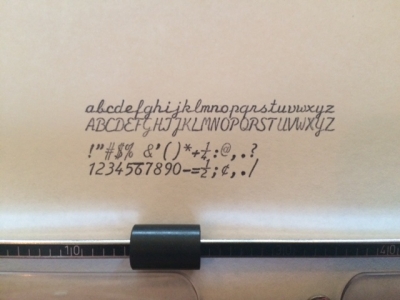 abcdefghijklmnopqrstuvwxyz
ABCDEFGHIJKLMNOPQRSTUVWXYZ
!"#$% &'()*+¼:@,.?
1234567890-=½;¢,./
10